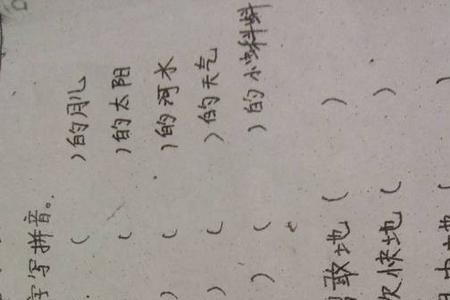 字写拼音。
( )的月儿
( )的太阳
) ( )的河水
) ( )的天气
) ( )的小蝌蚪
敢地( )
快地( )
地( )